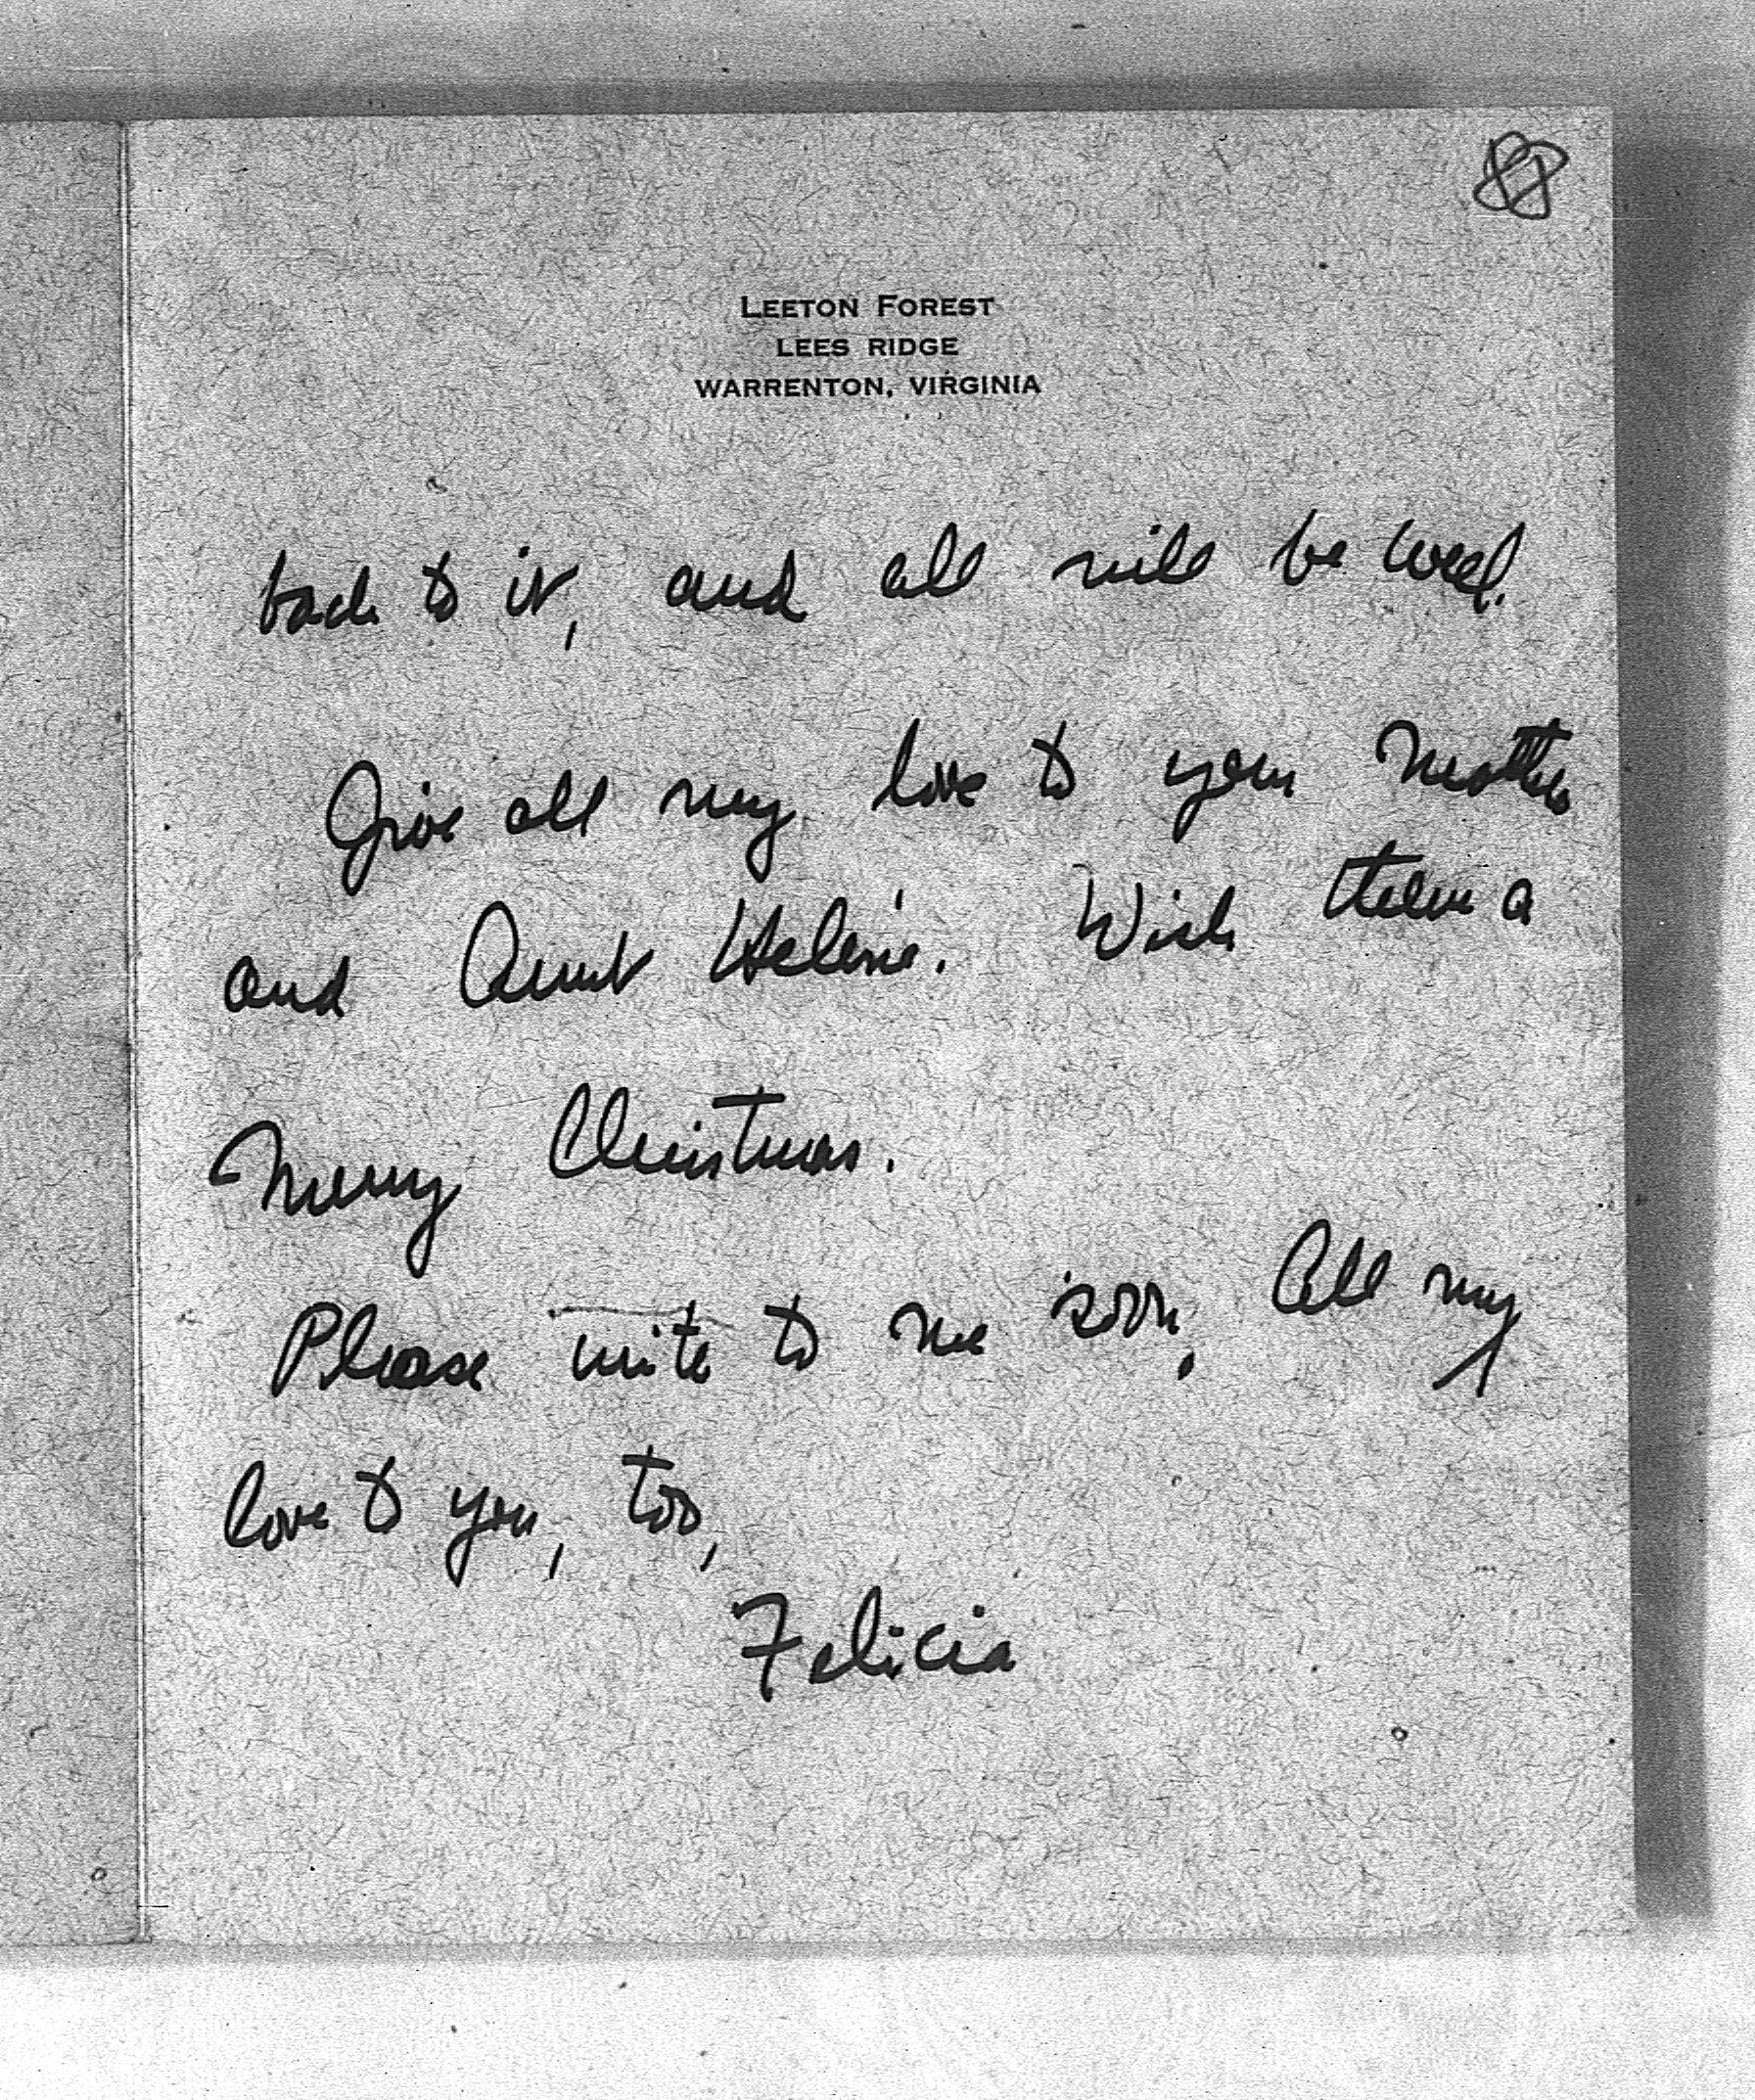 LEETON FOREST
LEES RIDGE
WARRENTON, VIRGINIA
back to it, and all will be well.
Give all my love to your Mother
and Aunt Helene. Wish them a
Merry Christmas.
Please write to me soon. All my
love to you, too,
Felicia